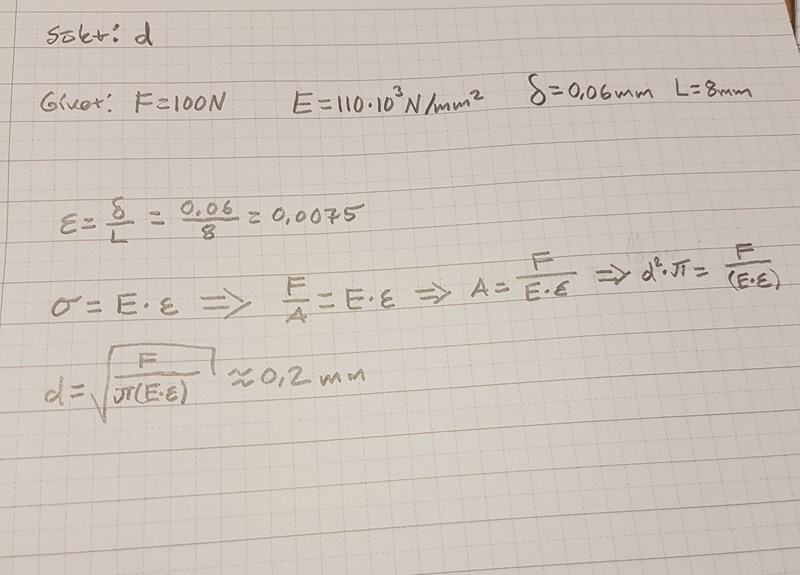 Sökt: d
Givet: F=100N E=110·10³N/mm² δ=0,06mm L=8mm
ε= δ/L = 0,06/8 = 0,0075
σ=E·ε ⇒ F/A=E·ε ⇒ A= F/E·ε ⇒ d²·π= F/(E·ε)
d=√F/π(E·ε) ≈0,2 mm